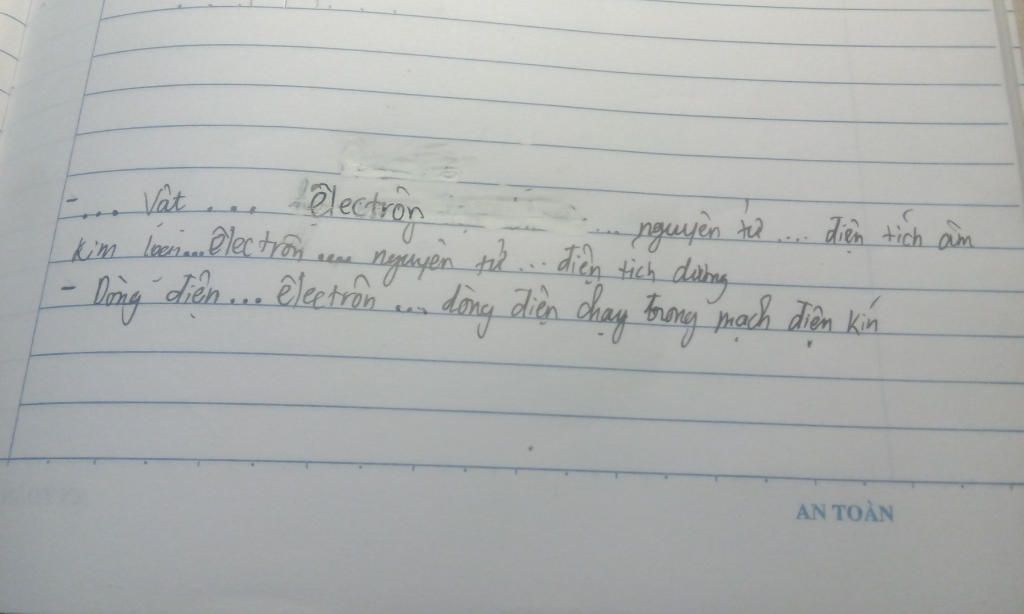 - ... Vât ... êlectrôn ... nguyên tử .... điện tích âm
kim loại...êlectrôn .... nguyên tử ... điện tích dương
- Dòng điện ... êlectrôn ... dòng điện chạy trong mạch điện kín
AN TOÀN